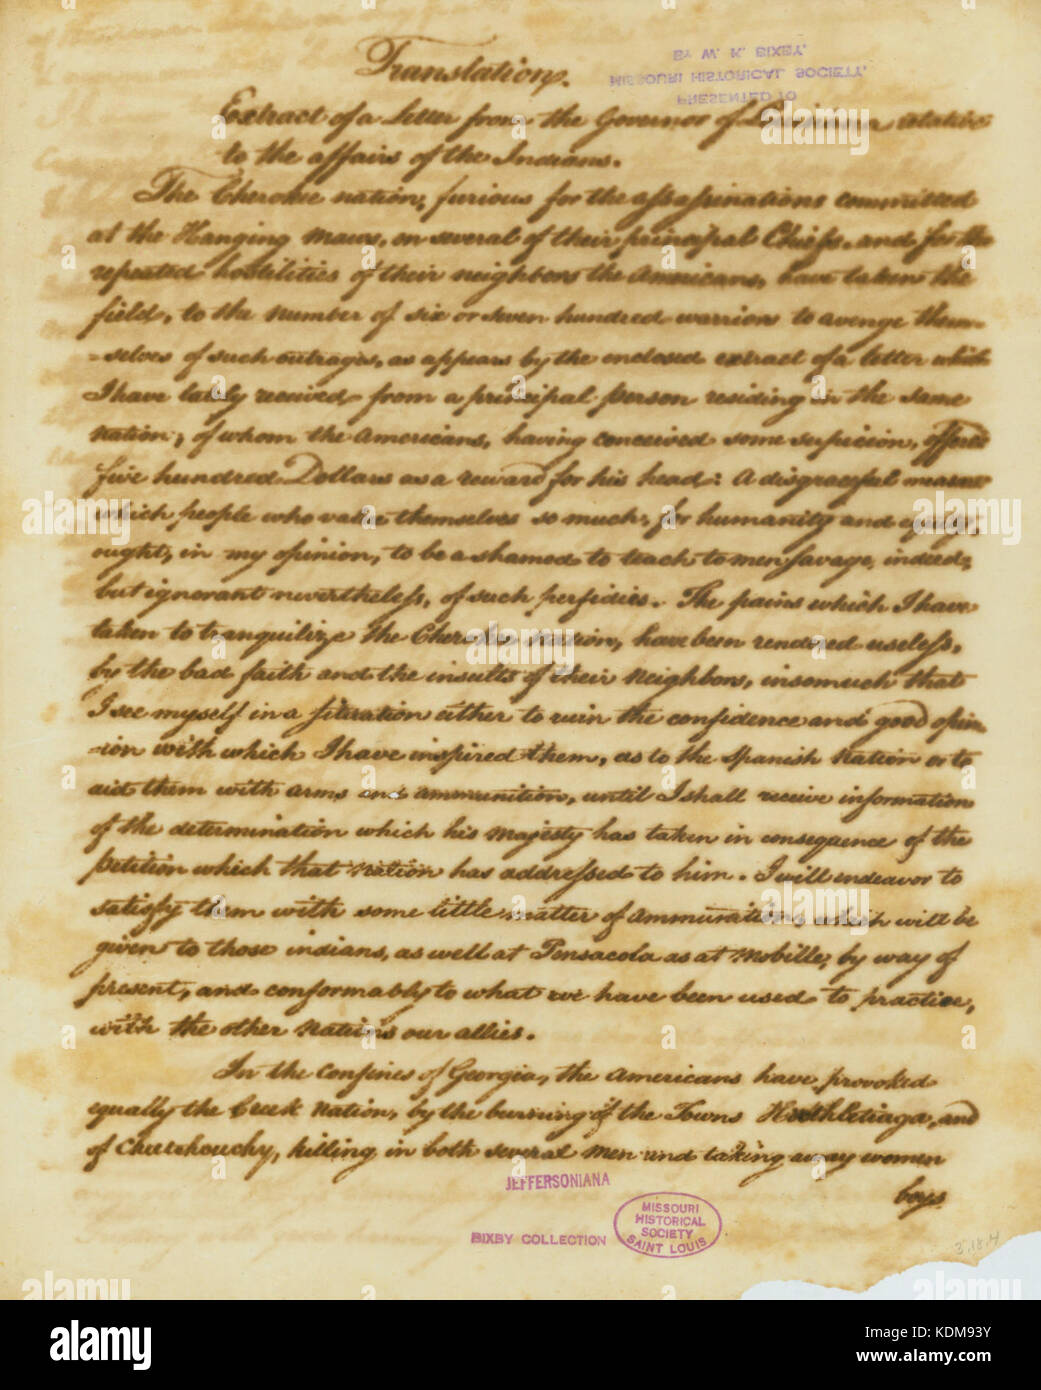 Translation.
PRESENTED TO
MISSOURI HISTORICAL SOCIETY,
BY W. K. BIXBY.
Extract of a Letter from the Governor of Louisiana relative
to the affairs of the Indians.
The Cherokee nation, furious for the assassinations committed
at the Hanging maws, on several of their principal Chiefs, and for the
repeated hostilities of their neighbors the americans, have taken the
field, to the number of six or seven hundred warriors to avenge them-
-selves of such outrages, as appears by the enclosed extract of a letter which
I have lately received from a principal person residing in the same
nation, of whom the americans, having conceived some suspicion, offered
five hundred Dollars as a reward for his head: A disgraceful means
which people who value themselves so much, for humanity and equity,
ought, in my opinion, to be ashamed to teach to men savage, indeed,
but ignorant nevertheless, of such perfidies. The pains which I have
taken to tranquilize the Cherokee nation, have been rendered useless,
by the bad faith and the insults of their neighbors, insomuch that
I see myself in a situation either to ruin the confidence and good opin-
-ion with which I have inspired them, as to the Spanish nation or to
aid them with arms and ammunition, until I shall receive information
of the determination which his majesty has taken in consequence of the
petition which that nation has addressed to him. I will endeavor to
satisfy them with some little matter of ammunition, which will be
given to those indians, as well at Pensacola as at Mobille, by way of
present, and conformably to what we have been used to practice,
with the other nations our allies.
In the confines of Georgia, the americans have provoked
equally the Creek nation, by the burning of the Towns and
of killing in both several men and taking away women
boys
JEFFERSONIANA
BIXBY COLLECTION
MISSOURI
HISTORICAL
SOCIETY
SAINT LOUIS
3.18.4
alamy
alamy
alamy
alamy
alamy
alamy
alamy
alamy stock photo
KDM93Y
www.alamy.com